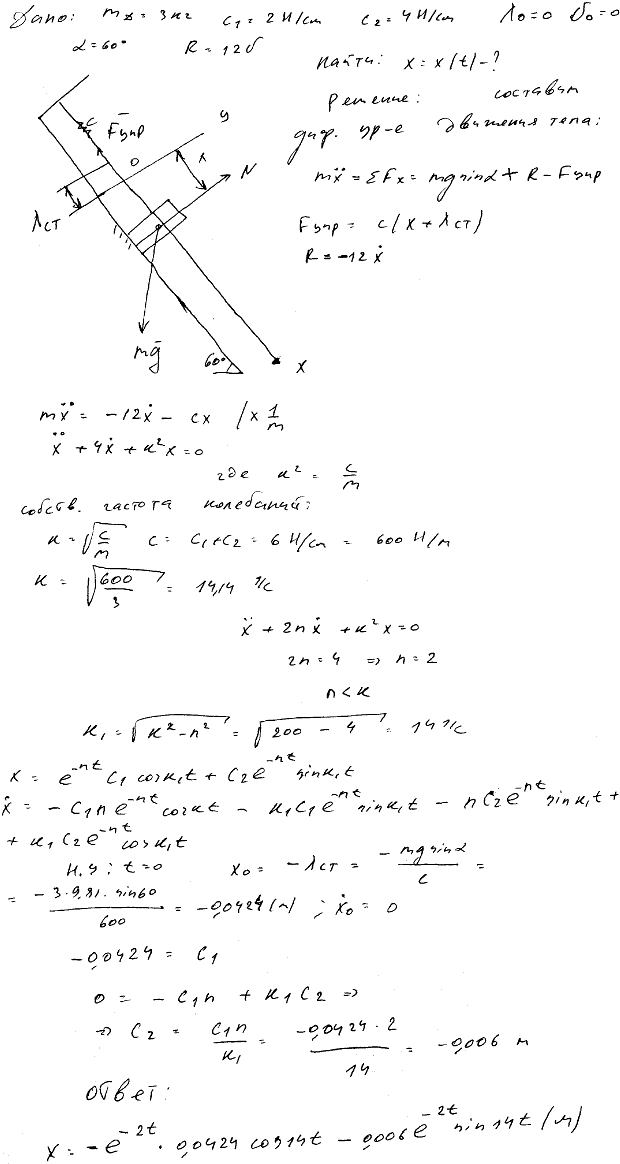 Дано: m_д = 3 кг c₁ = 2 Н/cm c₂ = 4 Н/cm λ₀ = 0 v₀ = 0
α = 60° R = 12v
Найти: x = x(t) - ?
Решение: составим
диф. ур-е движения тела:
mẍ = ΣFx = mg sinα + R - Fупр
Fупр = c(x + λст)
R = -12ẋ
c
F̄упр
y
o
x
N
λст
mḡ
60°
x
mẍ = -12ẋ - cx /× 1/m
ẍ + 4ẋ + к²x = 0
где к² = c/m
собств. частота колебаний:
к = √(c/m) c = c₁ + c₂ = 6 Н/cm = 600 Н/м
к = √(600/3) = 14,14 1/c
ẍ + 2nẋ + к²x = 0
2n = 4 => n = 2
n < к
к₁ = √(к² - n²) = √(200 - 4) = 14 1/c
x = e^(-nt) C₁ cosк₁t + C₂e^(-nt) sinк₁t
ẋ = -C₁n e^(-nt) cosкt - к₁C₁e^(-nt) sinк₁t - nC₂e^(-nt) sinк₁t +
+ к₁C₂e^(-nt) cosк₁t
н.у: t = 0 x₀ = -λст = -mg sinα/c =
= -3·9,81·sin60/600 = -0,0424 (м) ; ẋ₀ = 0
-0,0424 = C₁
0 = -C₁n + к₁C₂ =>
=> C₂ = C₁n/к₁ = -0,0424·2/14 = -0,006 м
Ответ:
x = -e^(-2t) · 0,0424 cos14t - 0,006e^(-2t) sin14t (м)